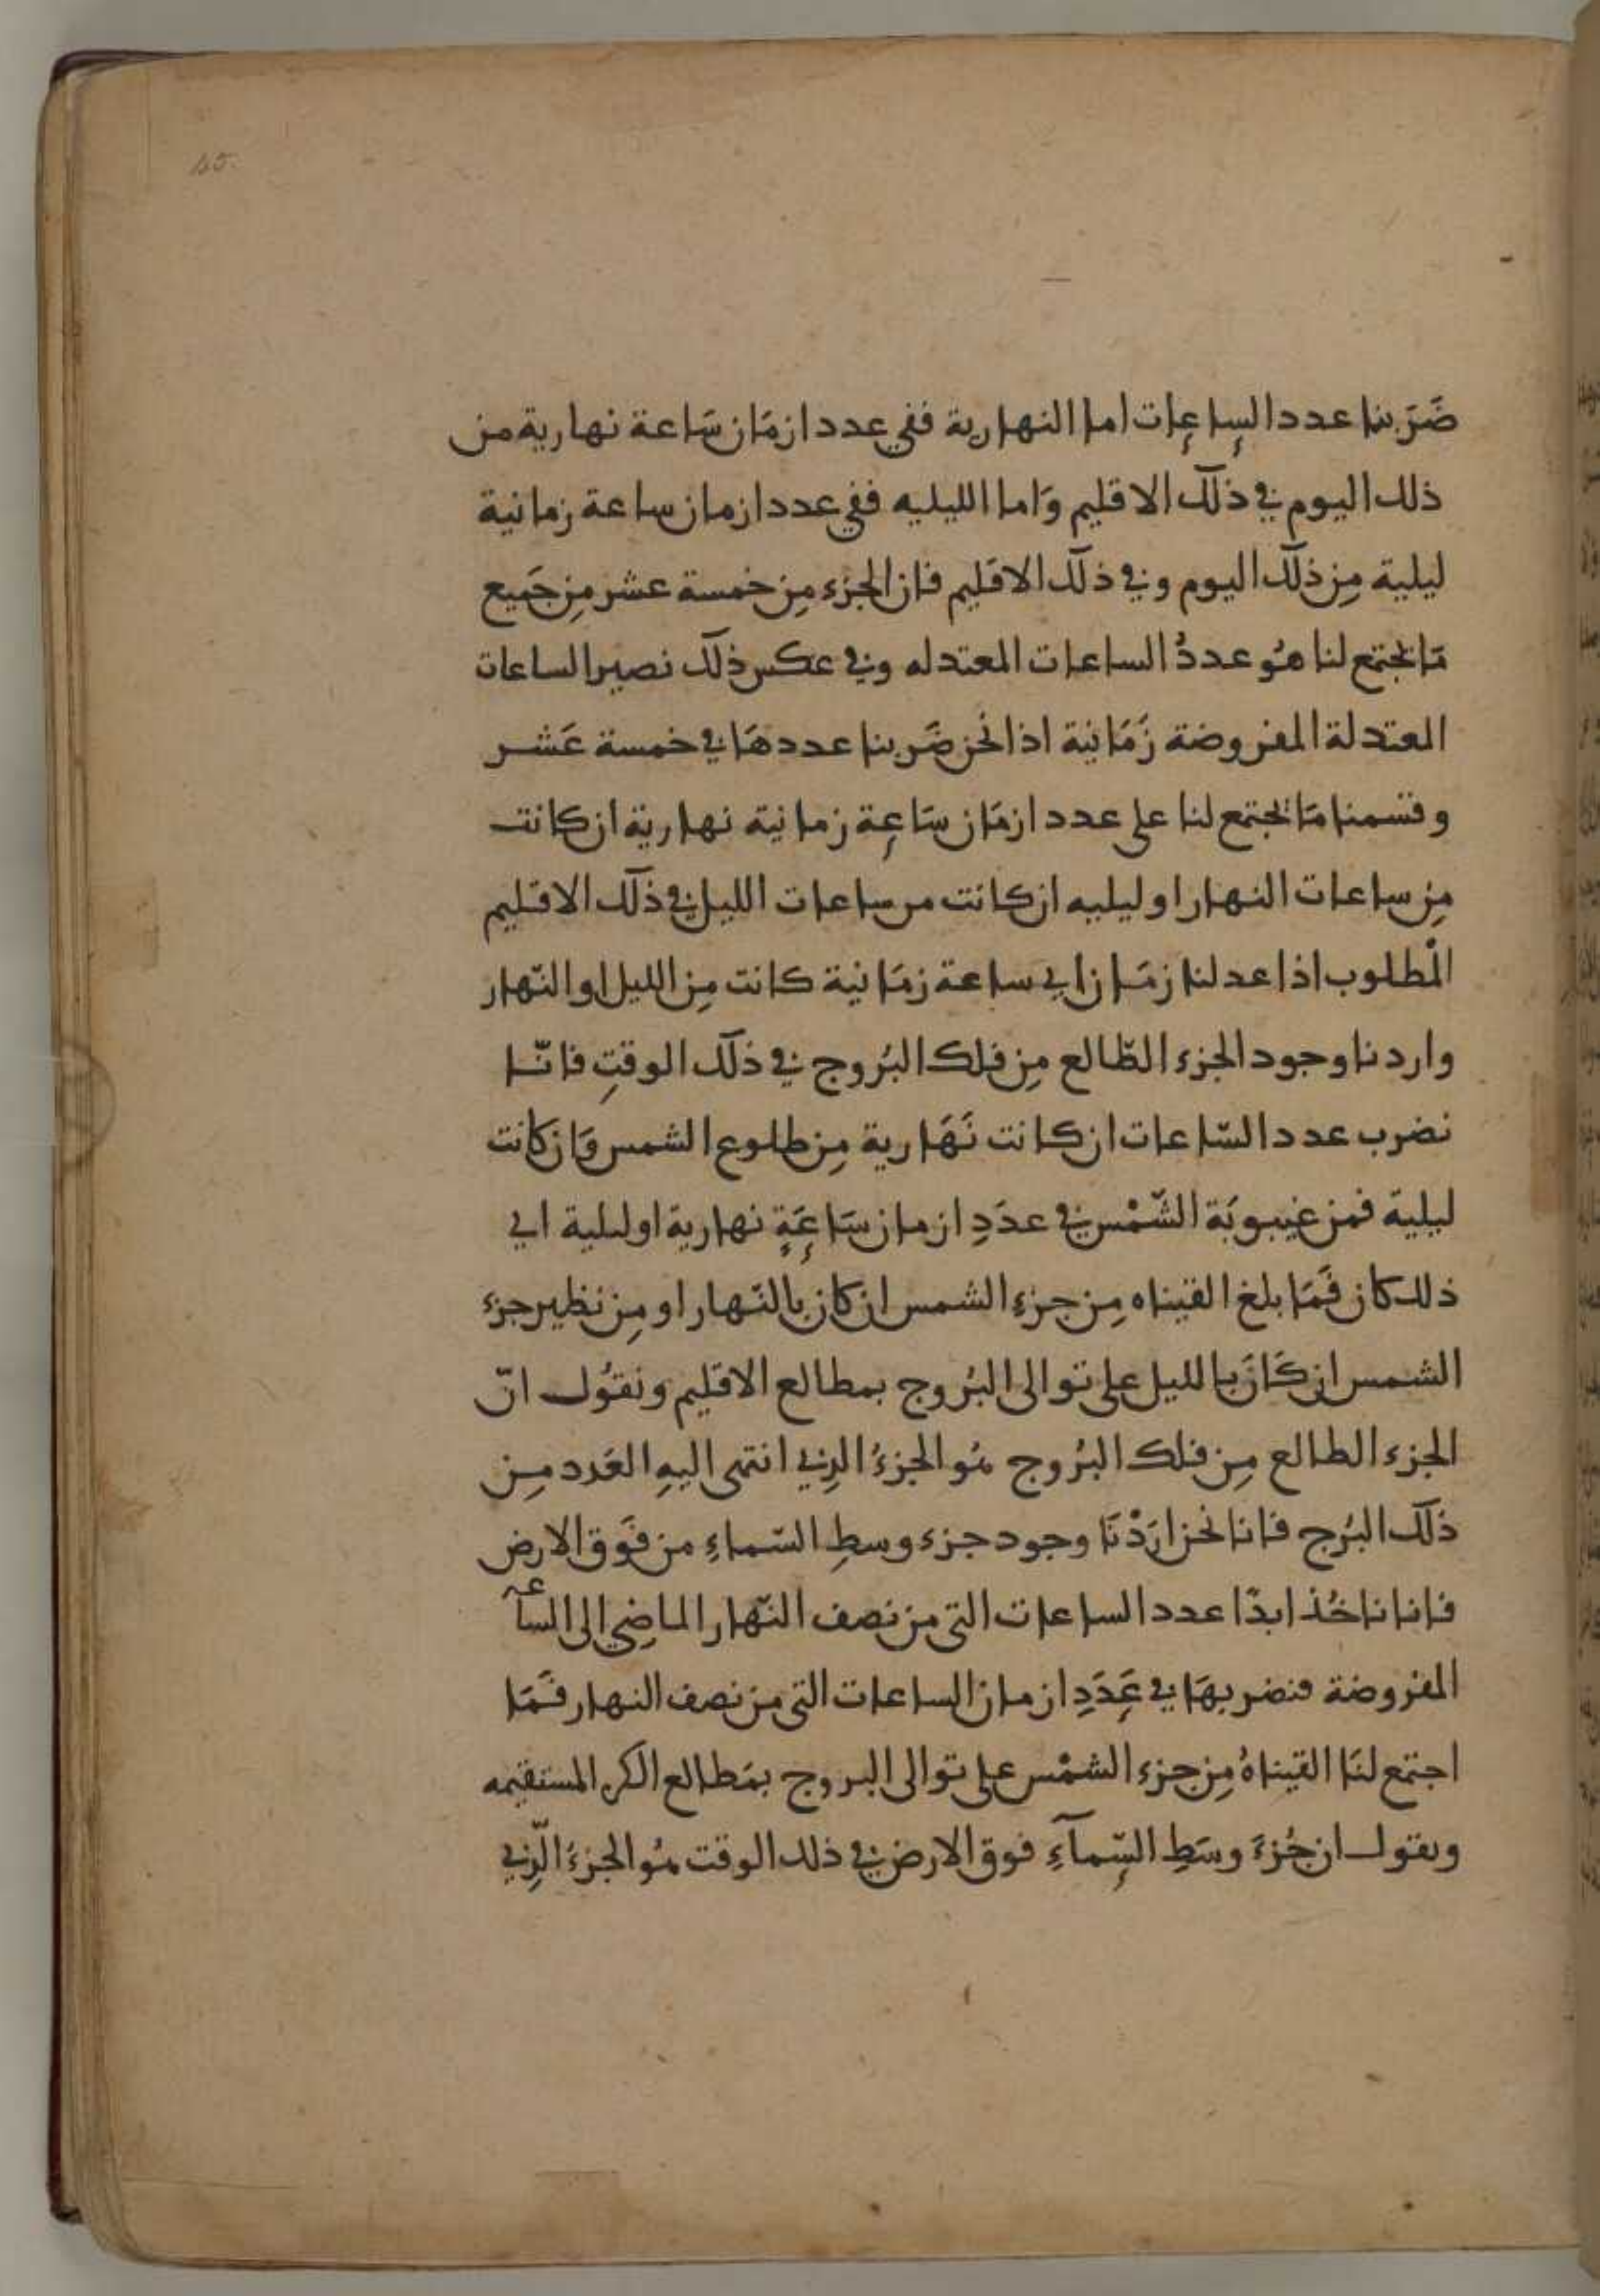 45.
ضَرَبنا عدد الساعات اما النهارية ففي عدد ازمَان سَاعة نهارية من
ذلك اليوم في ذلك الاقليم وَاما الليليه ففي عدد ازمان ساعة زمانية
ليلية مِن ذلك اليوم وفي ذلك الاقليم فان الجزء مِن خمسة عشر مِن جَميع
مَا يجتمع لنا هُو عددُ الساعات المعتدله وفي عكس ذلك نصير الساعات
المعتدلة المفروضة زَمَانية اذا نحن ضَربنا عددهَا في خمسة عَشر
وقسمنا مَا يجتمع لنا على عدد ازمَان سَاعة زمانية نهارية ان كانت
مِن ساعات النهار او ليليه ان كانت من ساعات الليل في ذلك الاقليم
المْطلوب اذا عد لنا زمَان اي ساعة زمَانية كانت مِن الليل او النّهار
واردنا وجود الجزء الطّالع مِن فلك البُروج في ذلك الوقتِ فانّا
نضرب عدد السّاعات ان كانت نَهَارية مِن طلوع الشمس وَان كانت
ليلية فمن غيبوبَة الشّمْس في عدَدِ ازمان سَاعَةٍ نهارية او ليلية اي
ذلك كان فَمَا بلغ القيناه مِن جزءِ الشمس ان كان بالنّهار او مِن نظير جزء
الشمس ان كَانَ بالليل على توالى البُروج بمطالع الاقليم ونقُول انّ
الجزء الطالع مِن فلك البُروج هُو الجزءُ الذِي انتهى اليهِ العَدد مِن
ذلك البُرج فانا نحن ارَدْنَا وجود جزء وسطِ السّماءِ من فَوق الارض
فانا ناخُذ ابدًا عدد الساعات التي من نصف النّهار الماضِي الى الساعة
المفروضة فنضربهَا في عَدَدِ ازمان الساعات التي من نصف النهار فَمَا
اجتمع لنَا القيناهُ مِن جزء الشمْس على توالى البروج بمَطالع الكره المستقيمه
ونقول ان جُزءَ وسَطِ السّمآءِ فوق الارض في ذلك الوقت هُو الجزءَ الّذِي